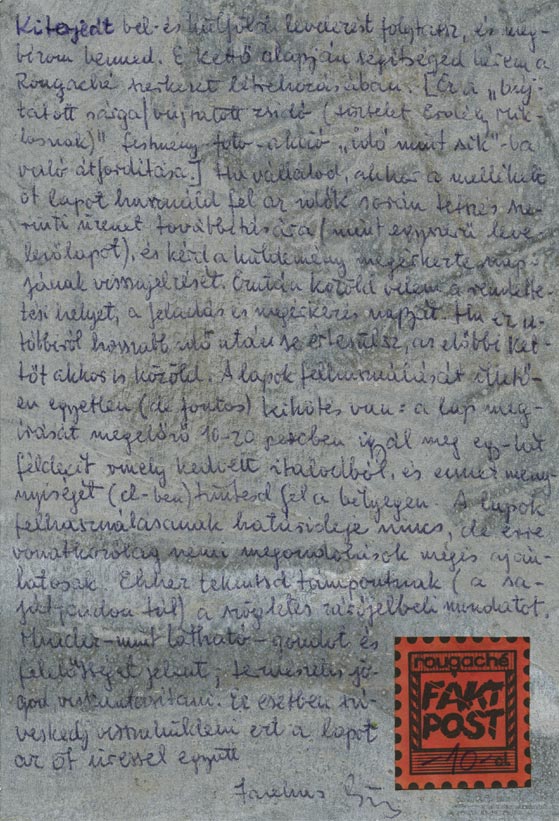 Kiterjedt bel- és külföldi levelezést folytatsz, és meg-
bízom benned. E kettő alapján segítséged kérem a
Rougaché szerkezet létrehozásában. [Ez a „buj-
tatott sárga/bújtatott zsidó (tisztelet Erdély Mik-
lósnak)" festmény-fotó-akció „idő mint sík"-ba
való átfordítása.] Ha vállalod, akkor a mellékelt
öt lapot használd fel az idők során tetszés sze-
rinti üzenet továbbítására (mint egyszerű leve-
lezőlapot), és kérd a küldemény megérkezte nap-
jának visszajelzését. Ezután közöld velem a rendelte-
tési helyet, a feladás és megérkezés napját. Ha ez u-
tóbbiról hosszabb idő után se értesülsz, az előbbi ket-
tőt akkor is közöld. A lapok felhasználását illető-
en egyetlen (de fontos) kikötés van: a lap meg-
írását megelőző 10-20 percben igyál meg egy-két
féldecit vmely kedvelt italodból, és ennek meny-
nyiségét (cl-ben) tüntesd fel a bélyegen. A lapok
felhasználásának határideje nincs, de erre
vonatkozólag némi megondolások mégis aján-
latosak. Ehhez tekintsd támpontnak (a sa-
játjaidon túl) a szögletes zárójelbeli mondatot.
Mindez – mint látható – gondot és
felelősséget jelent; természetes jo-
god visszautasítani. Ez esetben szí-
veskedj visszaküldeni ezt a lapot
az öt üressel együtt
rougaché
FAKT
POST
-10- cl